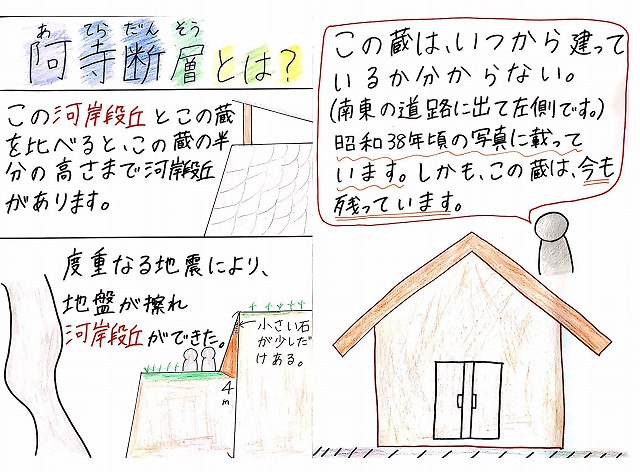 あ てら だん そう
阿寺断層とは?
この河岸段丘とこの蔵
を比べると、この蔵の半
分の高さまで河岸段丘
があります。
度重なる地震により、
地盤が擦れ
河岸段丘ができた。
小さい石
が少しだ
けある。
4m
この蔵は、いつから建って
いるか分からない。
(南東の道路に出て左側です。)
昭和38年頃の写真に載って
います。しかも、この蔵は、今も
残っています。